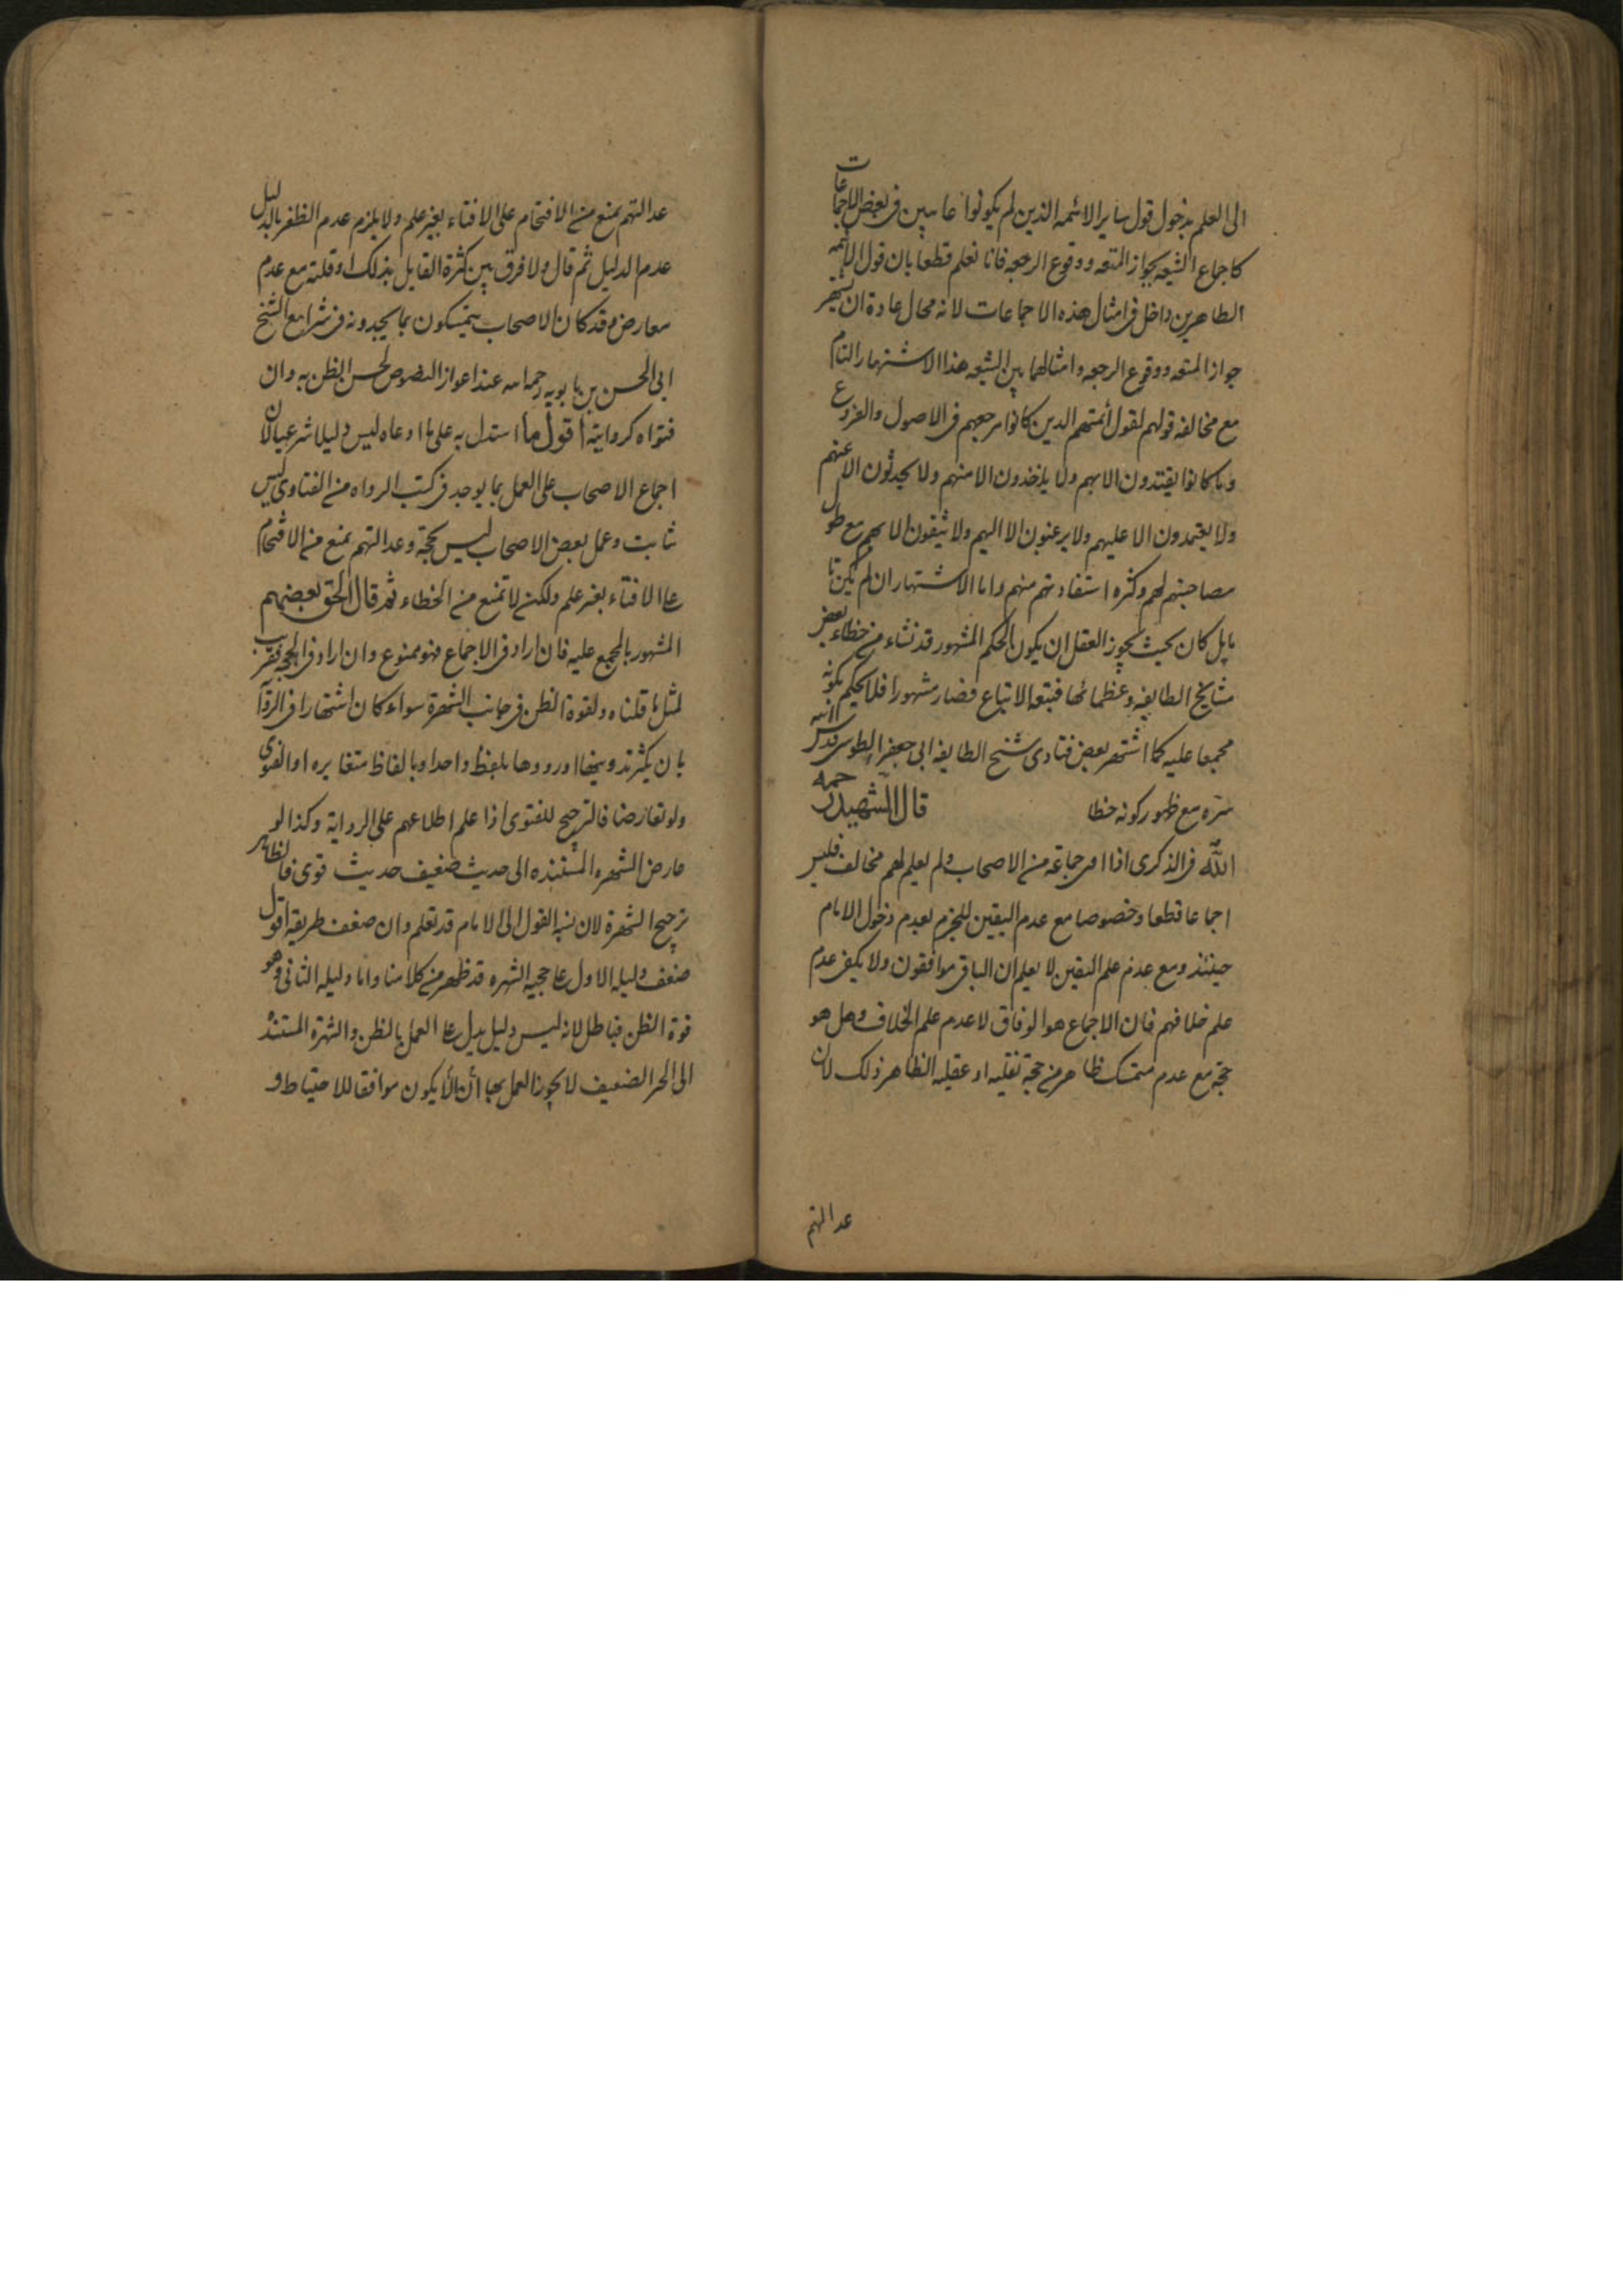 الى العلم بدخول قول ساير الائمه الذين لم يكونوا غايبين فى بعض الاجماعات
كاجماع الشيعه بجواز المتعه ووقوع الرجعه فانا نعلم قطعا بان قول الائمه
الطاهرين داخل فى امثال هذه الاجماعات لانه محال عادة ان يشتهر
جواز المتعه ووقوع الرجعه وامثالهما بين الشيعه هذا الاشتهار التام
مع مخالفه قولهم لقول أئمتهم الذين كانوا مرجعهم فى الاصول والفروع
وما كانوا يقتدون الا بهم ولا ياخذون الا منهم ولا يحدثون الا عنهم
ولا يعتمدون الا عليهم ولا يرغبون الا اليهم ولا يثقون الا بهم مع طول
مصاحبتهم لهم وكثره استفادتهم منهم واما الاشتهار ان لم يكن تا
ما بل كان بحيث يجوز العقل ان يكون الحكم المشهور قد نشاء من خطاء بعض
مشايخ الطايفه وعظمائها فتبعه الاتباع فصار مشهورا فلا يحكم بكونه
مجمعا عليه كما اشتهر بعض فتاوى شيخ الطايفه ابى جعفر الطوسى قدس الله
سرّه مع ظهور كونه خطا قال الشهيد رحمه
اللّه فى الذكرى اذا افتى جماعة من الاصحاب ولم يعلم لهم مخالف فليس
اجماعا قطعا وخصوصا مع عدم اليقين للجزم بعدم دخول الامام
حينئذ ومع عدم علم اليقين لا يعلم ان الباقى موافقون ولا يكفى عدم
علم خلافهم فان الاجماع هو الوفاق لا عدم علم الخلاف وهل هو
حجة مع عدم متمسك ظاهر من حجة نقليه او عقليه الظاهر ذلك لان
عدالتهم
عدالتهم يمنع من الاقتحام على الافتاء بغير علم ولا يلزم عدم الظفر بالدليل
عدم الدليل ثم قال ولا فرق بين كثرة القايل بذلك او قلته مع عدم
معارض وقد كان الاصحاب يتمسكون بما يجدونه فى شرايع الشيخ
ابى الحسن بن بابويه رحمه الله عند اعواز النصوص لحسن الظن به وان
فتواه كروايته أقول ما استدل به على ما ادعاه ليس دليلا شرعيا لان
اجماع الاصحاب على العمل بما يوجد فى كتب الرواه من الفتاوى ليس
ثابت وعمل بعض الاصحاب ليس بحجة وعدالتهم تمنع من الاقتحام
على الافتاء بغير علم ولكن لا تمنع من الخطاء ثم قال الحق بعضهم
المشهور بالمجمع عليه فان اراد فى الاجماع فهو ممنوع وان اراد فى الحجيه فقريب
لمثل ما قلناه ولقوة الظن فى جانب الشهرة سواء كان اشتهارا فى الرواية
بان يكثر تدوينها او رووها بلفظ واحد او بالفاظ متغايره او الفتوى
ولو تعارضا فالترجيح للفتوى اذا علم اطلاعهم على الرواية وكذا لو
عارض الشهره المستنده الى حديث ضعيف حديث قوى فالظاهر
ترجيح الشهرة لان نسبه القول الى الامام قد تعلم وان ضعف طريقه اقول
ضعف دليله الاول على حجيه الشهره قد ظهر من كلامنا واما دليله الثانى وهو
قوة الظن فباطل لانه ليس دليل يدل على العمل بالظن والشهرة المستنده
الى الخبر الضعيف لا يجوز العمل بها الا ان يكون موافقا للاحتياط و